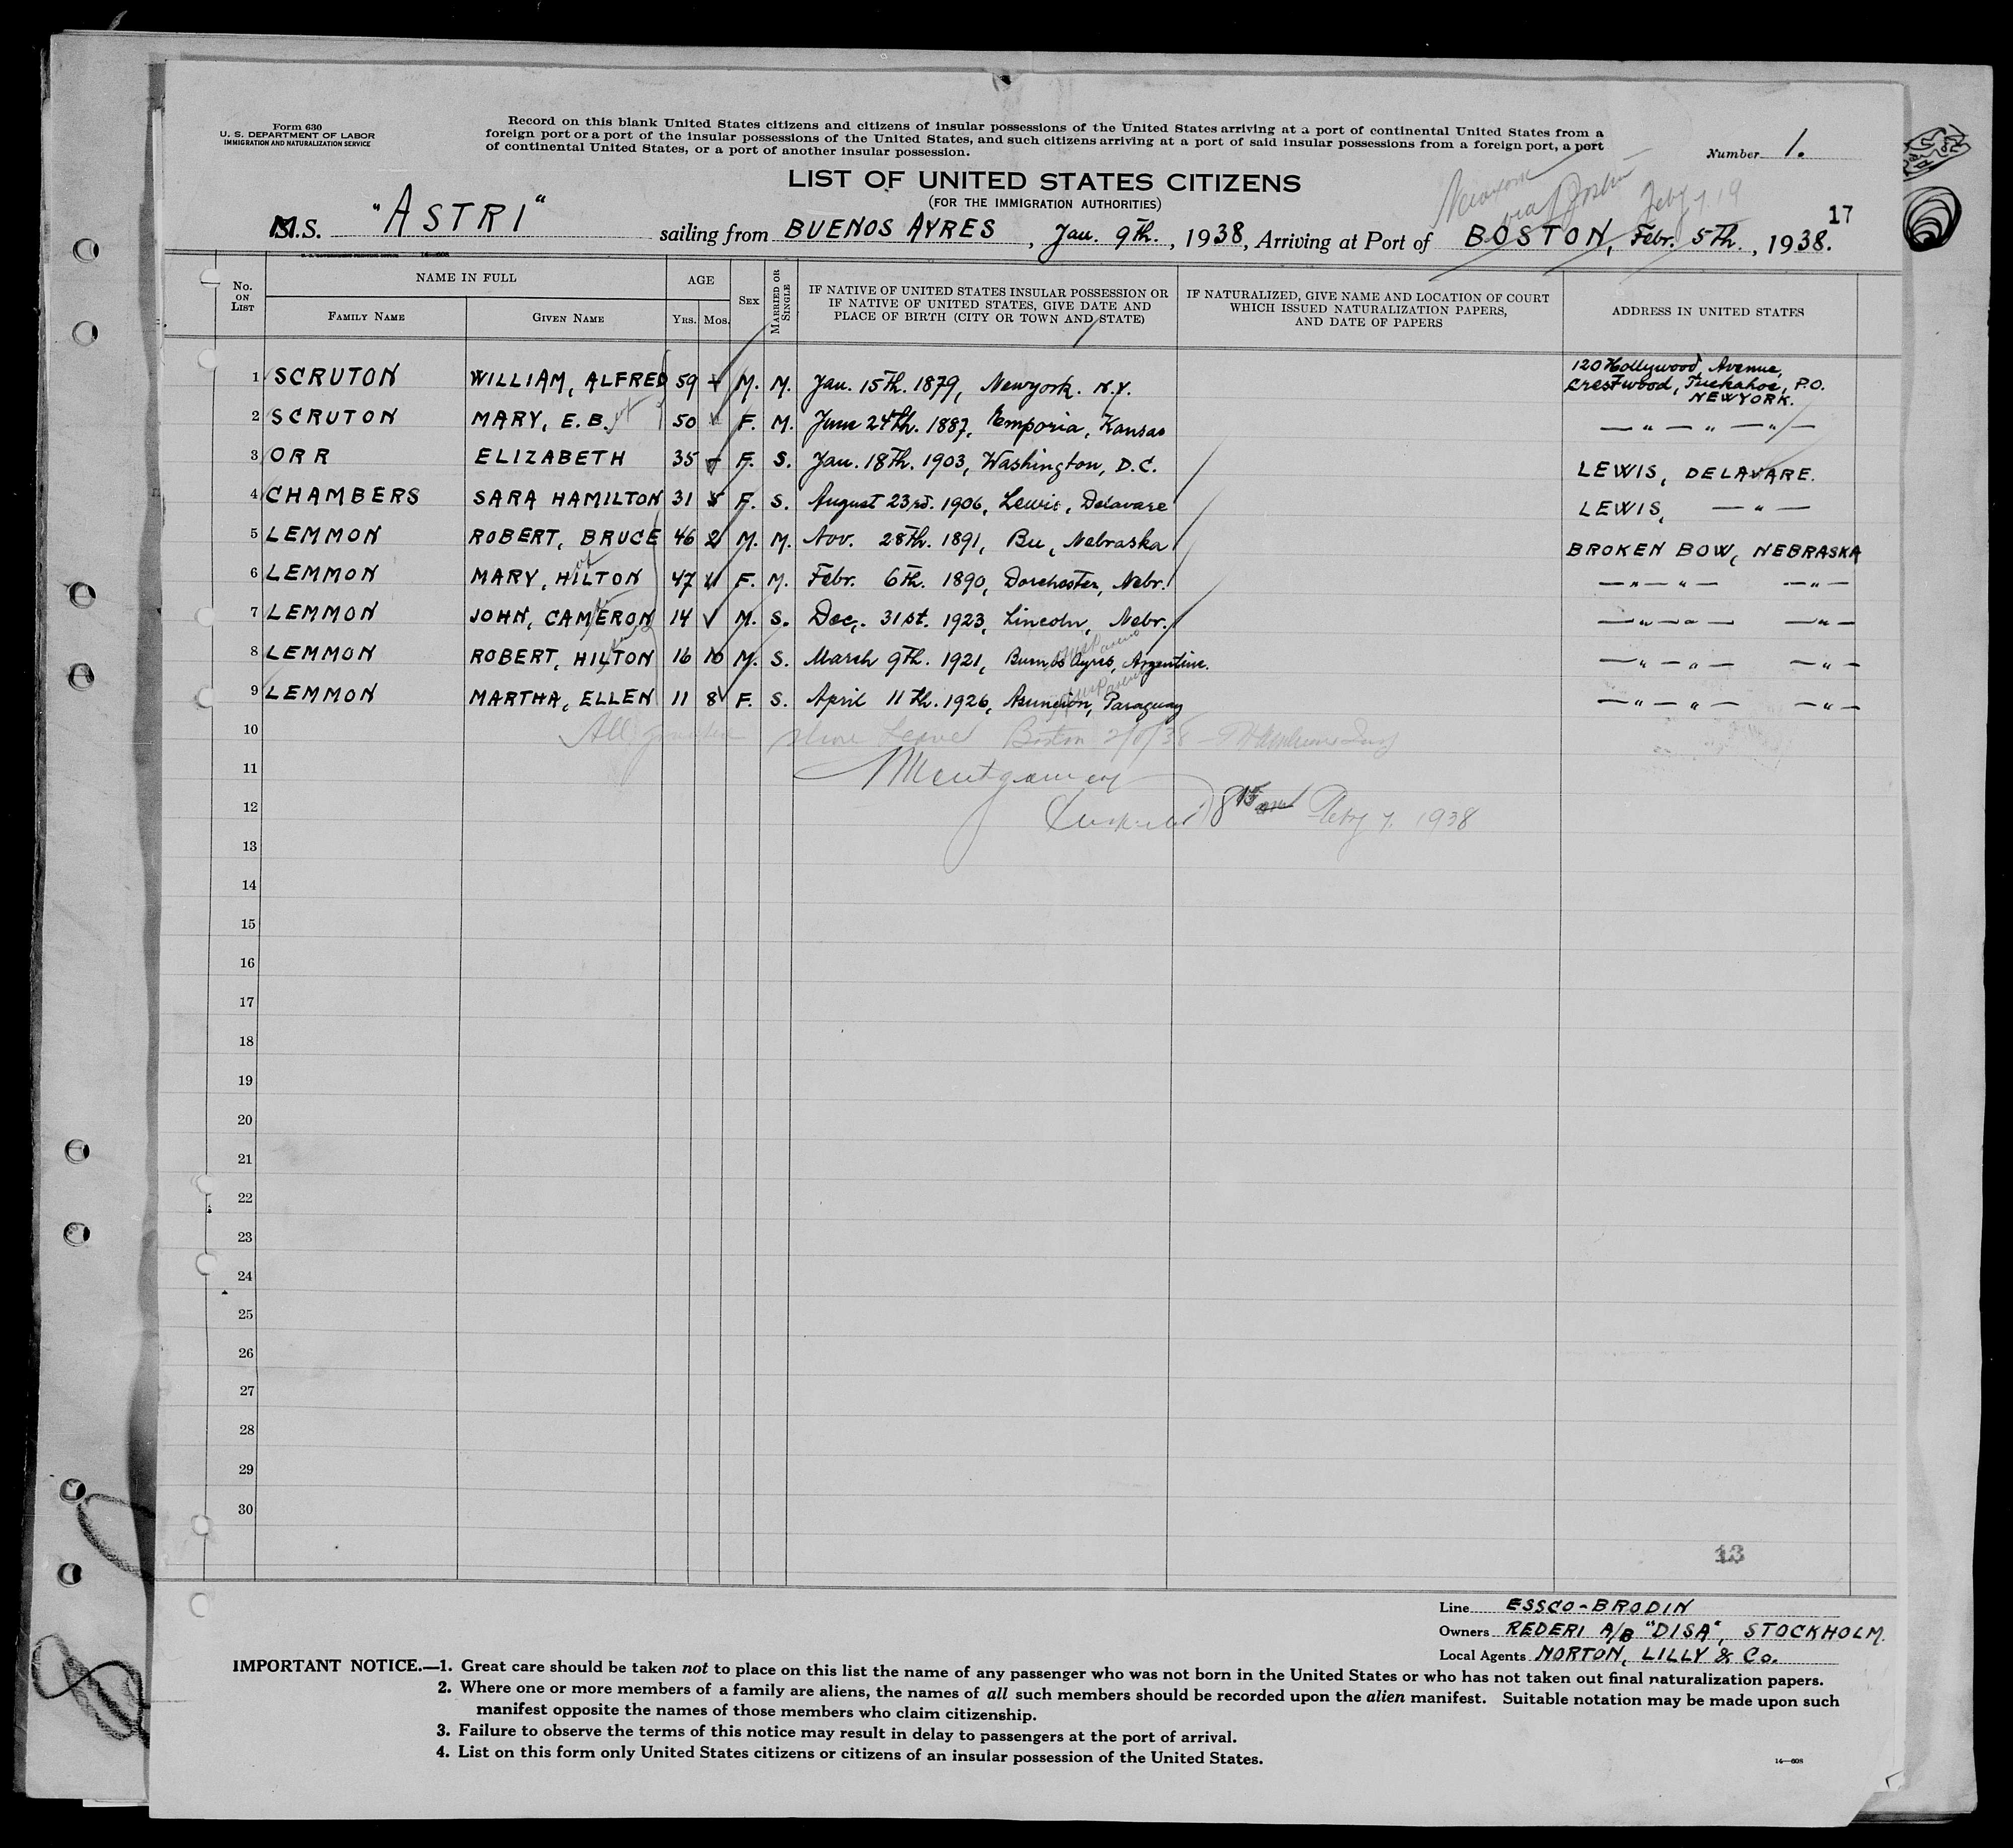 Form 630
U. S. DEPARTMENT OF LABOR
IMMIGRATION AND NATURALIZATION SERVICE
Record on this blank United States citizens and citizens of insular possessions of the United States arriving at a port of continental United States from a
foreign port or a port of the insular possessions of the United States, and such citizens arriving at a port of said insular possessions from a foreign port, a port
of continental United States, or a port of another insular possession.
Number 1.
LIST OF UNITED STATES CITIZENS
(FOR THE IMMIGRATION AUTHORITIES)
Newyork
via Boston Feby 7, 19
17
M.S. "ASTRI" sailing from BUENOS AYRES, Jan. 9th., 1938, Arriving at Port of BOSTON, Febr. 5th., 1938.
No. ON LIST
NAME IN FULL
FAMILY NAME GIVEN NAME
AGE
YRS. MOS.
SEX
MARRIED OR SINGLE
IF NATIVE OF UNITED STATES INSULAR POSSESSION OR
IF NATIVE OF UNITED STATES, GIVE DATE AND
PLACE OF BIRTH (CITY OR TOWN AND STATE)
IF NATURALIZED, GIVE NAME AND LOCATION OF COURT
WHICH ISSUED NATURALIZATION PAPERS,
AND DATE OF PAPERS
ADDRESS IN UNITED STATES
1 SCRUTON WILLIAM, ALFRED 59 M. M. Jan. 15th. 1879, Newyork. N.Y. 120 Hollywood, Avenue,
Crestwood, Tuckahoe, P.O.
NEWYORK.
2 SCRUTON MARY, E.B. 50 F. M. June 24th. 1887, Emporia, Kansas — " — " — " —
3 ORR ELIZABETH 35 F. S. Jan. 18th. 1903, Washington, D.C. LEWIS, DELAVARE.
4 CHAMBERS SARA HAMILTON 31 5 F. S. August 23rd. 1906, Lewis, Delavare LEWIS, — " —
5 LEMMON ROBERT, BRUCE 46 2 M. M. Nov. 28th. 1891, Bee, Nebraska BROKEN BOW, NEBRASKA
6 LEMMON MARY, HILTON 47 11 F. M. Febr. 6th. 1890, Dorchester, Nebr. — " — " — — " —
7 LEMMON JOHN, CAMERON 14 M. S. Dec. 31st. 1923, Lincoln, Nebr. — " — " — — " —
8 LEMMON ROBERT, HILTON 16 10 M. S. March 9th. 1921, Buenos Ayres, Argentine. — " — " — — " —
9 LEMMON MARTHA, ELLEN 11 8 F. S. April 11th. 1926, Asuncion, Paraguay — " — " — — " —
10
All granted shore leave Boston
11
Montgomery
12
8 15 am Feby 7. 1938
13
14
15
16
17
18
19
20
21
22
23
24
25
26
27
28
29
30
13
Line ESSCO-BRODIN
Owners REDERI A/B "DISA", STOCKHOLM.
Local Agents NORTON, LILLY & Co.
IMPORTANT NOTICE.—1. Great care should be taken not to place on this list the name of any passenger who was not born in the United States or who has not taken out final naturalization papers.
2. Where one or more members of a family are aliens, the names of all such members should be recorded upon the alien manifest. Suitable notation may be made upon such
manifest opposite the names of those members who claim citizenship.
3. Failure to observe the terms of this notice may result in delay to passengers at the port of arrival.
4. List on this form only United States citizens or citizens of an insular possession of the United States.
14—608